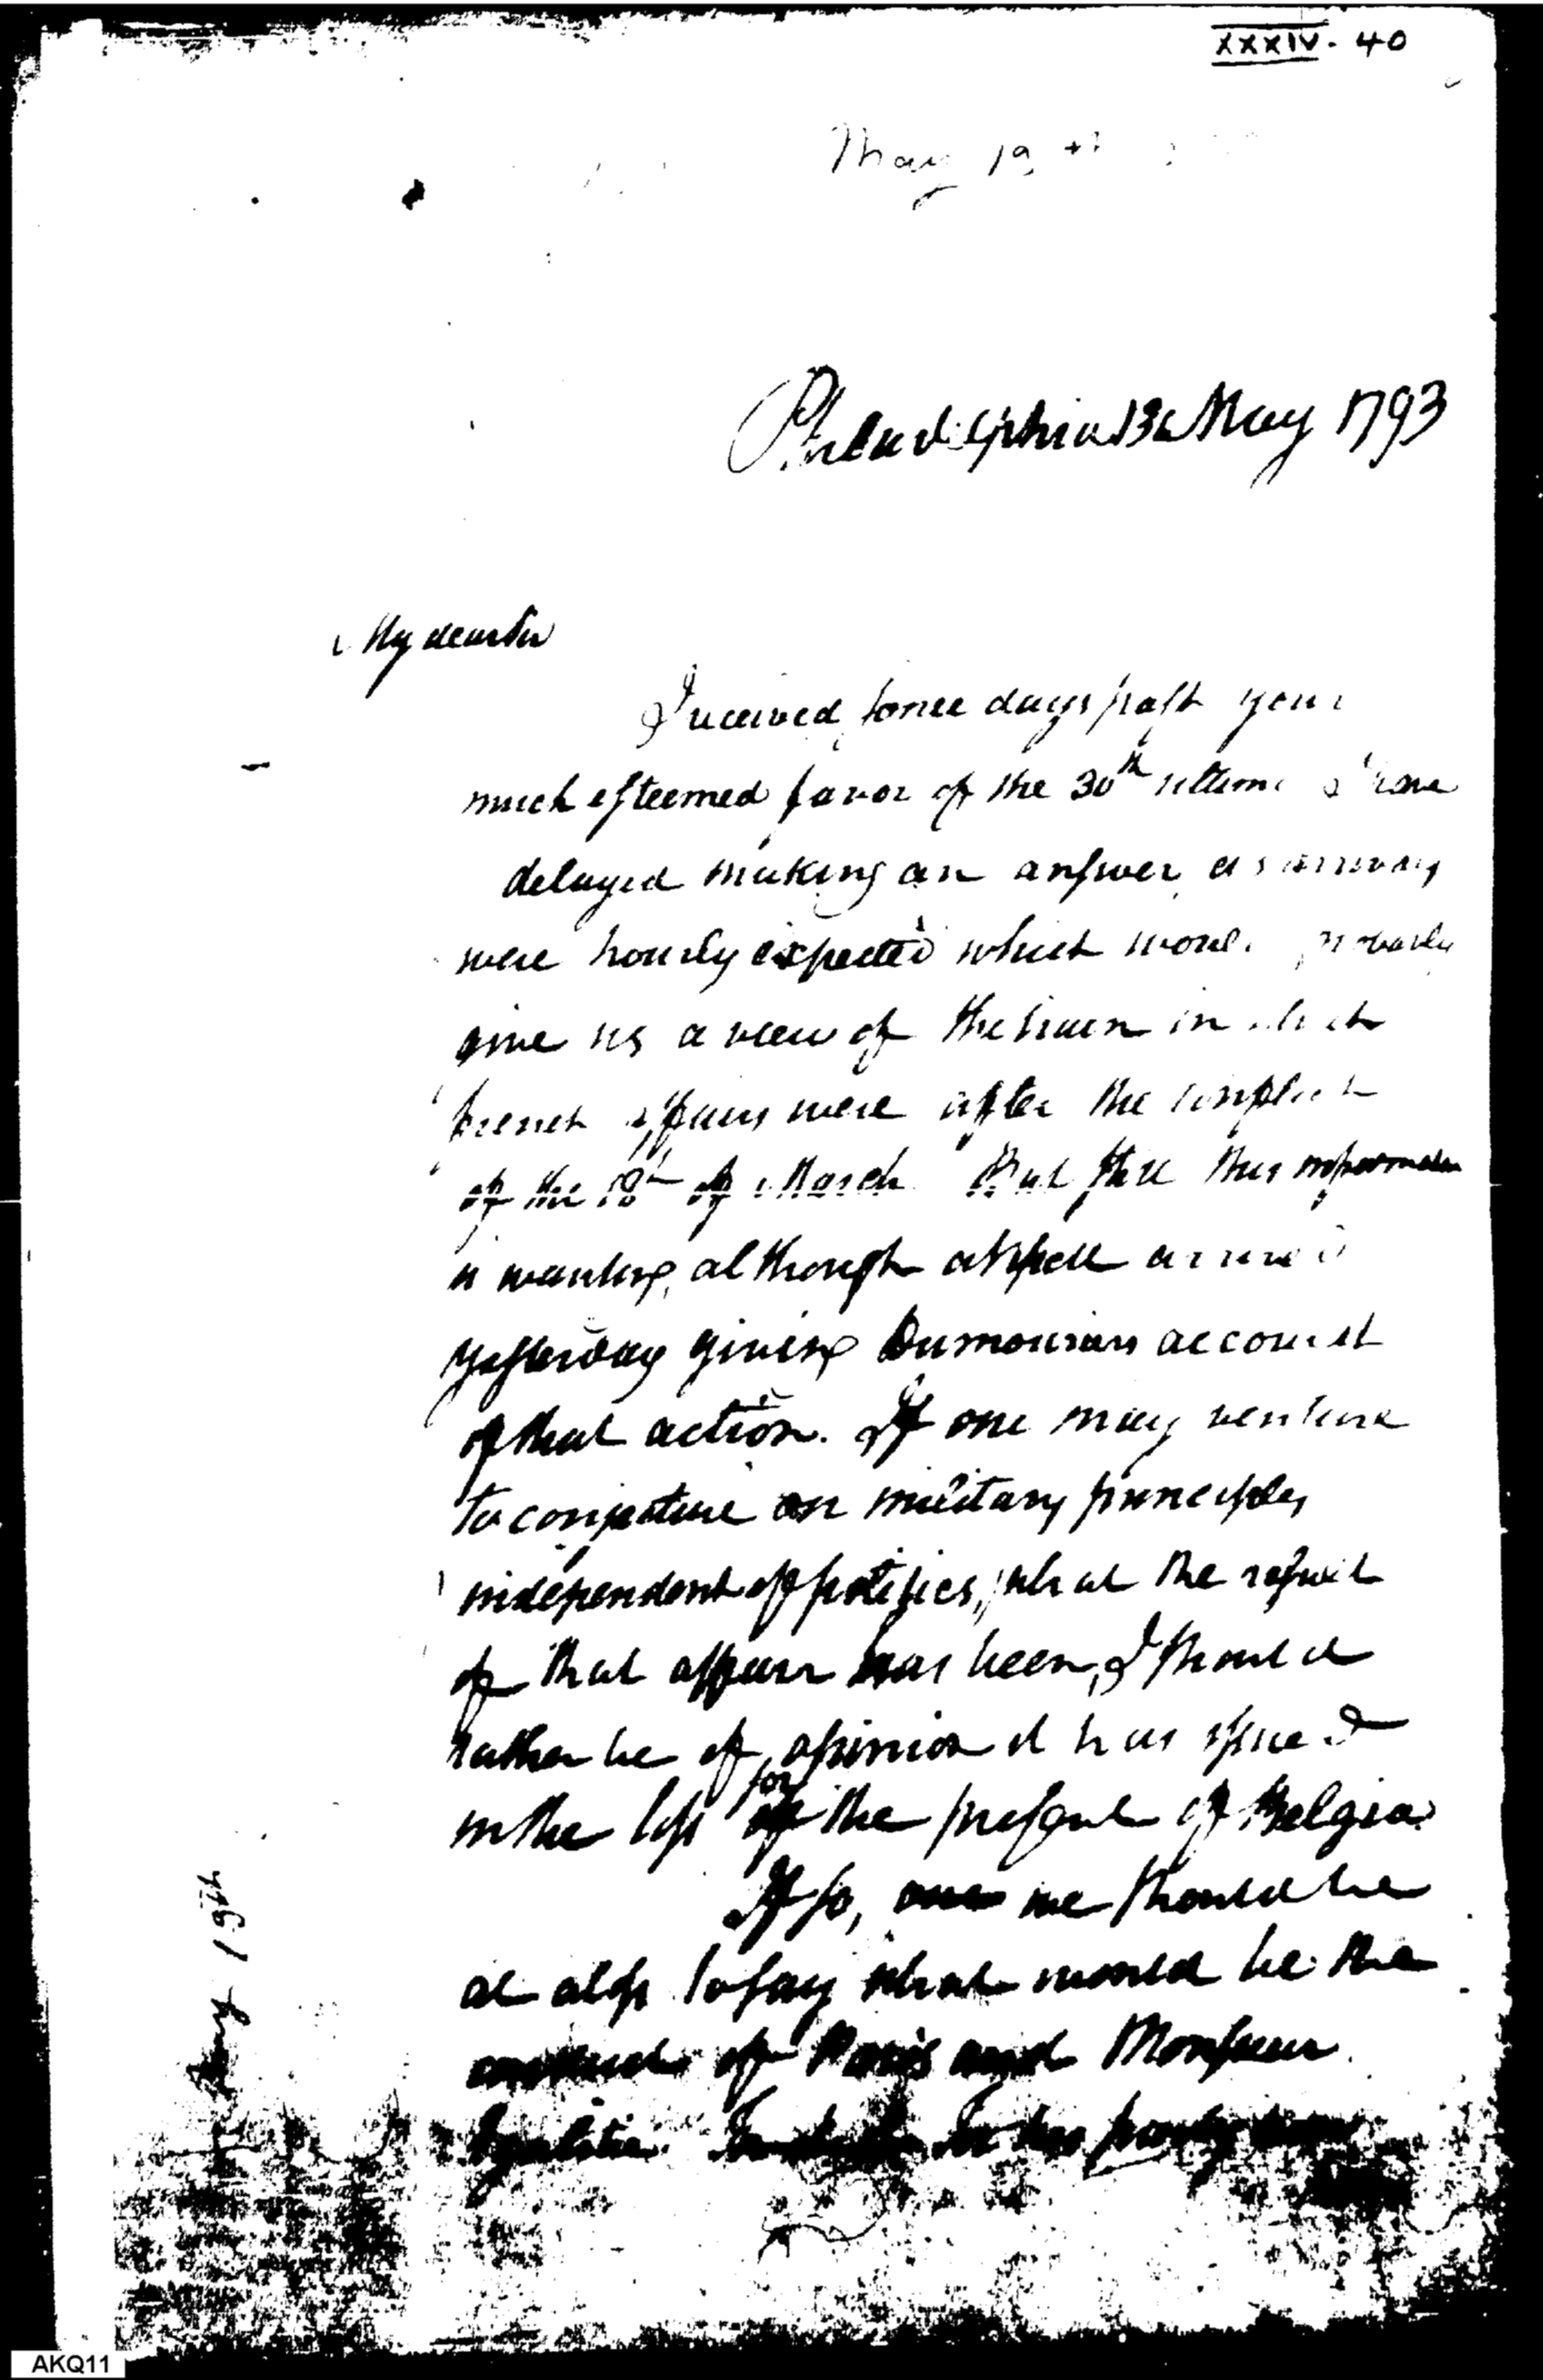 XXXIV. 40
May 19th
Philadelphia 13 May 1793
My dear Sir
I received some days past your
much esteemed favor of the 30th ultimo I have
delayed making an answer as
were hourly expected which would probably
give us a view of the train in which
french affairs were after the conflict
of the 18th of March But still this information
is wanting, although a vessell arrived
yesterday giving Dumouriers account
of that action. If one may venture
to conjecture on military principles
independent of politics, what the result
of that affair has been, I should
rather be of opinion it has issued
in the loss for the present of Belgia
If so, one should be
at a loss to say what would be the
conduct of Paris and Monsieur
Egalitie. his party
May 19th
AKQ11